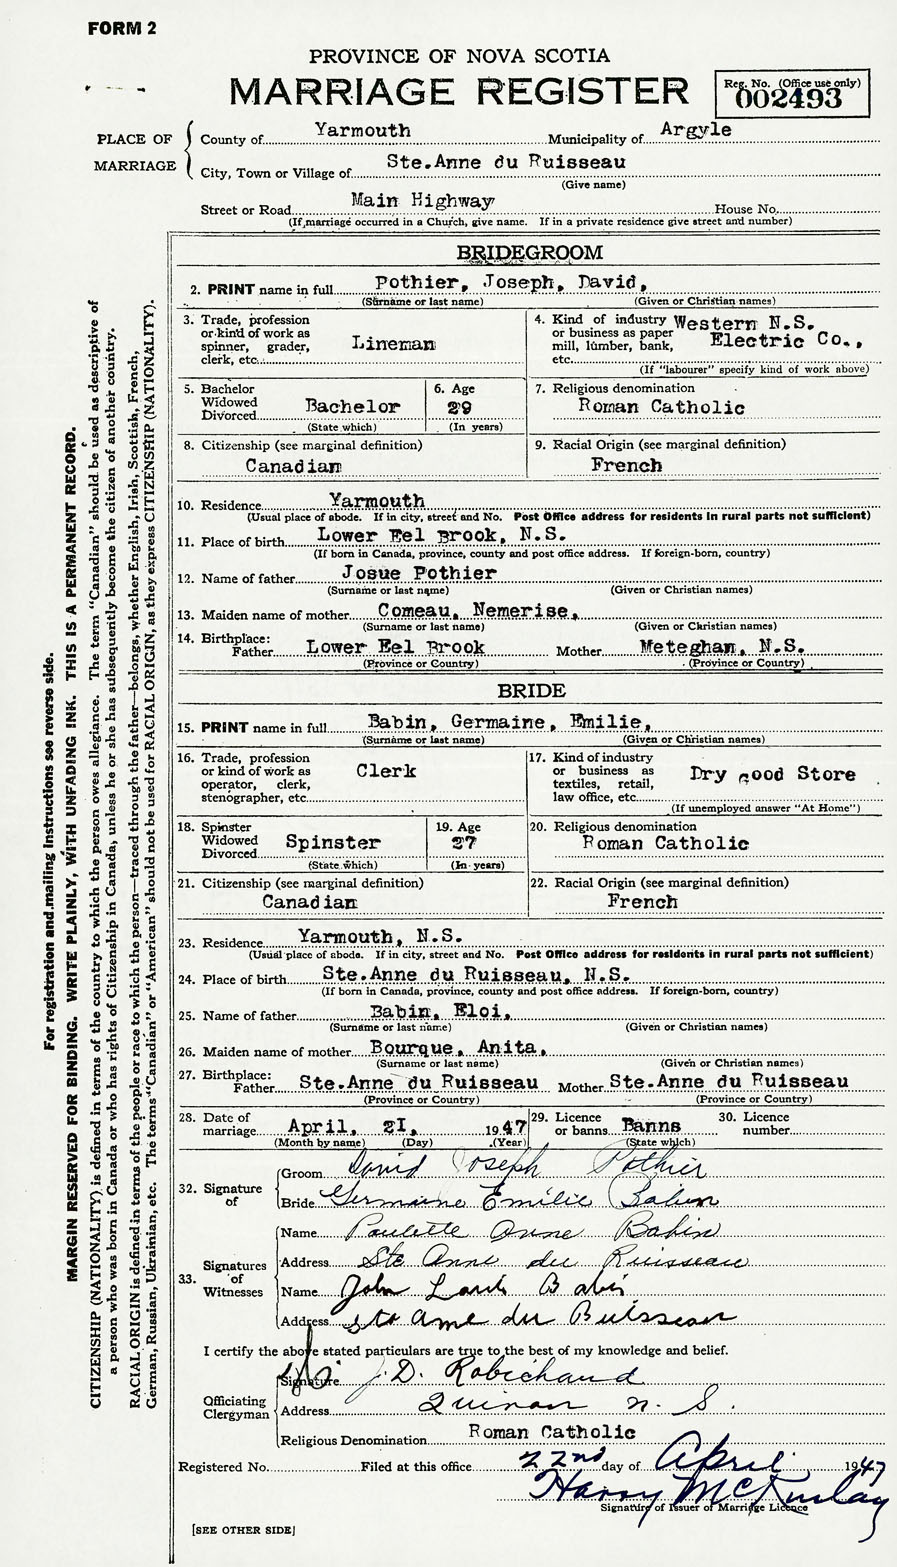 FORM 2
PROVINCE OF NOVA SCOTIA
MARRIAGE REGISTER
Reg. No. (Office use only)
002493
PLACE OF MARRIAGE
County of Yarmouth Municipality of Argyle
City, Town or Village of Ste.Anne du Ruisseau
(Give name)
Street or Road Main Highway House No.
(If marriage occurred in a Church, give name. If in a private residence give street and number)
BRIDEGROOM
2. PRINT name in full Pothier, Joseph, David,
(Surname or last name) (Given or Christian names)
3. Trade, profession or kind of work as spinner, grader, clerk, etc. Lineman
4. Kind of industry or business as paper mill, lumber, bank, etc. Western N.S. Electric Co.,
(If "labourer" specify kind of work above)
5. Bachelor Widowed Divorced Bachelor
(State which)
6. Age 29
(In years)
7. Religious denomination
Roman Catholic
8. Citizenship (see marginal definition)
Canadian
9. Racial Origin (see marginal definition)
French
10. Residence Yarmouth
(Usual place of abode. If in city, street and No. Post Office address for residents in rural parts not sufficient)
11. Place of birth Lower Eel Brook, N.S.
(If born in Canada, province, county and post office address. If foreign-born, country)
12. Name of father Josue Pothier
(Surname or last name) (Given or Christian names)
13. Maiden name of mother Comeau, Nemerise,
(Surname or last name) (Given or Christian names)
14. Birthplace:
Father Lower Eel Brook Mother Meteghan, N.S.
(Province or Country) (Province or Country)
BRIDE
15. PRINT name in full Babin, Germaine, Emilie,
(Surname or last name) (Given or Christian names)
16. Trade, profession or kind of work as operator, clerk, stenographer, etc. Clerk
17. Kind of industry or business as textiles, retail, law office, etc. Dry good Store
(If unemployed answer "At Home")
18. Spinster Widowed Divorced Spinster
(State which)
19. Age 27
(In years)
20. Religious denomination
Roman Catholic
21. Citizenship (see marginal definition)
Canadian
22. Racial Origin (see marginal definition)
French
23. Residence Yarmouth, N.S.
(Usual place of abode. If in city, street and No. Post Office address for residents in rural parts not sufficient)
24. Place of birth Ste.Anne du Ruisseau, N.S.
(If born in Canada, province, county and post office address. If foreign-born, country)
25. Name of father Babin, Eloi,
(Surname or last name) (Given or Christian names)
26. Maiden name of mother Bourque, Anita,
(Surname or last name) (Given or Christian names)
27. Birthplace:
Father Ste.Anne du Ruisseau Mother Ste.Anne du Ruisseau
(Province or Country) (Province or Country)
28. Date of marriage April, 21, 1947
(Month by name) (Day) (Year)
29. Licence or banns Banns
(State which)
30. Licence number
32. Signature of
Groom David Joseph Pothier
Bride Germaine Emilie Babin
33. Signatures of Witnesses
Name Paulette Anne Babin
Address Ste Anne du Ruisseau
Name John Babin
Address Ste Anne du Ruisseau
I certify the above stated particulars are true to the best of my knowledge and belief.
Officiating Clergyman
Signature J.D. Robichaud
Address Quinan N. S.
Religious Denomination Roman Catholic
Registered No. Filed at this office 22nd day of April 1947
Harry McKinlay
Signature of Issuer of Marriage Licence
[SEE OTHER SIDE]
For registration and mailing instructions see reverse side.
MARGIN RESERVED FOR BINDING. WRITE PLAINLY, WITH UNFADING INK. THIS IS A PERMANENT RECORD.
CITIZENSHIP (NATIONALITY) is defined in terms of the country to which the person owes allegiance. The term "Canadian" should be used as descriptive of
a person who was born in Canada or who has rights of Citizenship in Canada, unless he or she has subsequently become the citizen of another country.
RACIAL ORIGIN is defined in terms of the people or race to which the person—traced through the father—belongs, whether English, Irish, Scottish, French,
German, Russian, Ukrainian, etc. The terms "Canadian" or "American" should not be used for RACIAL ORIGIN, as they express CITIZENSHIP (NATIONALITY).